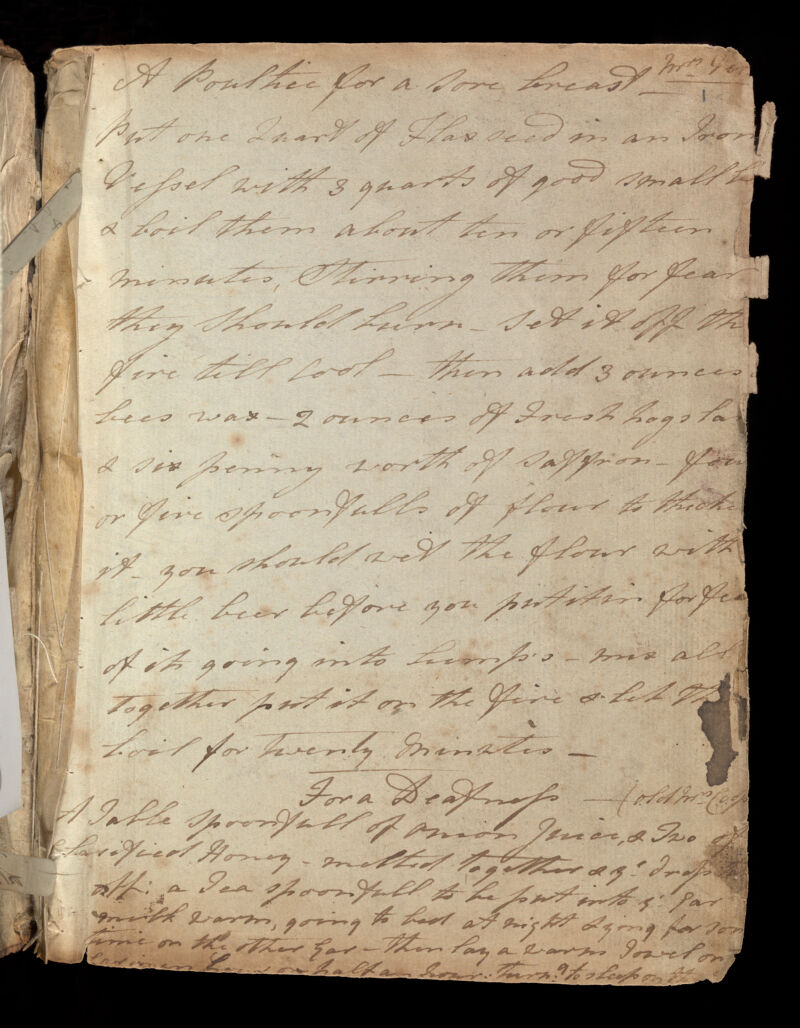 A Poultice for a sore breast — Mrs
Put one Quart of Flaxseed in an Iron
Vessel with 3 quarts of good small
& boil them about ten or fifteen
minutes, Stirring them for fear
they should burn — set it off th
fire till Cool — then add 3 ounces
bees wax — 2 ounces of Fresh hogs la
& six penny worth of saffron — fou
or five spoonfulls of flour to thicke
it — you should wet the flour with
little beer before you put it in for fea
of its going into lumps — mix all
together put it on the fire & let th
boil for Twenty Minutes —
For a Deafness — (old Mrs
A Table spoonfull of onion Juice, & Two of
Clarified Honey — melted together & ye drops
off: a Tea spoonfull to be put into ye Ear
milk warm, going to bed at night Lying for som
time on the other Ear — then lay a warm Towel on
or half an hour: turng to sleep on